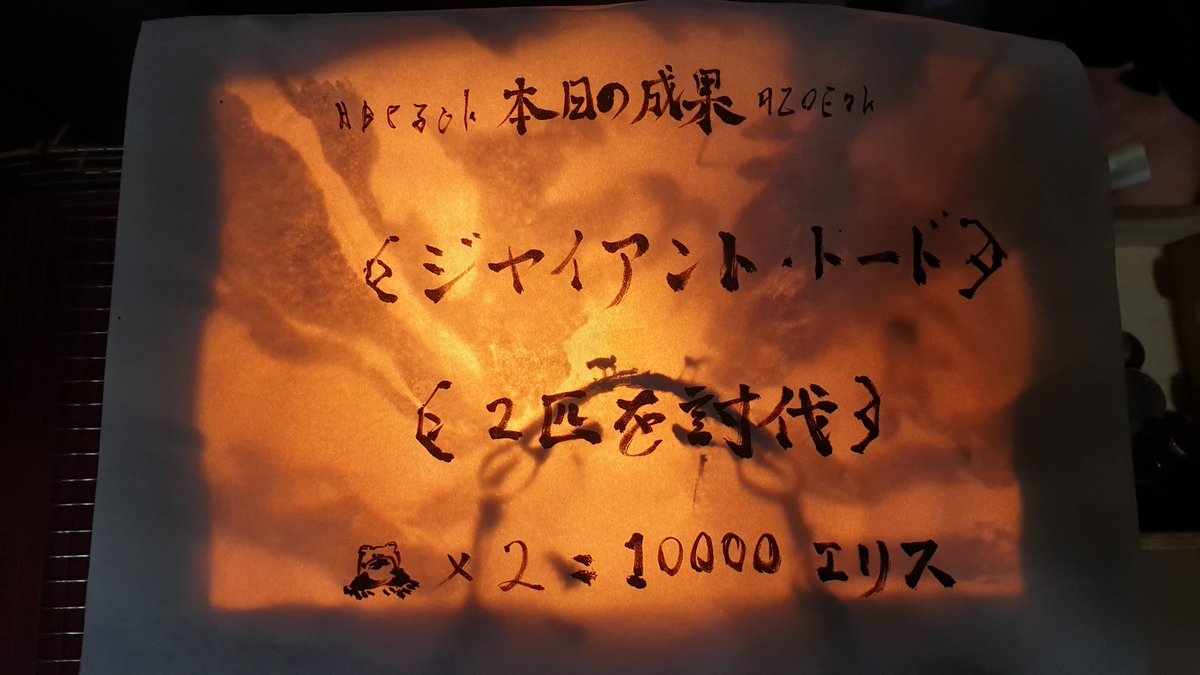 本日の成果
ジャイアント・トード
2匹を討伐
×2=10000エリス